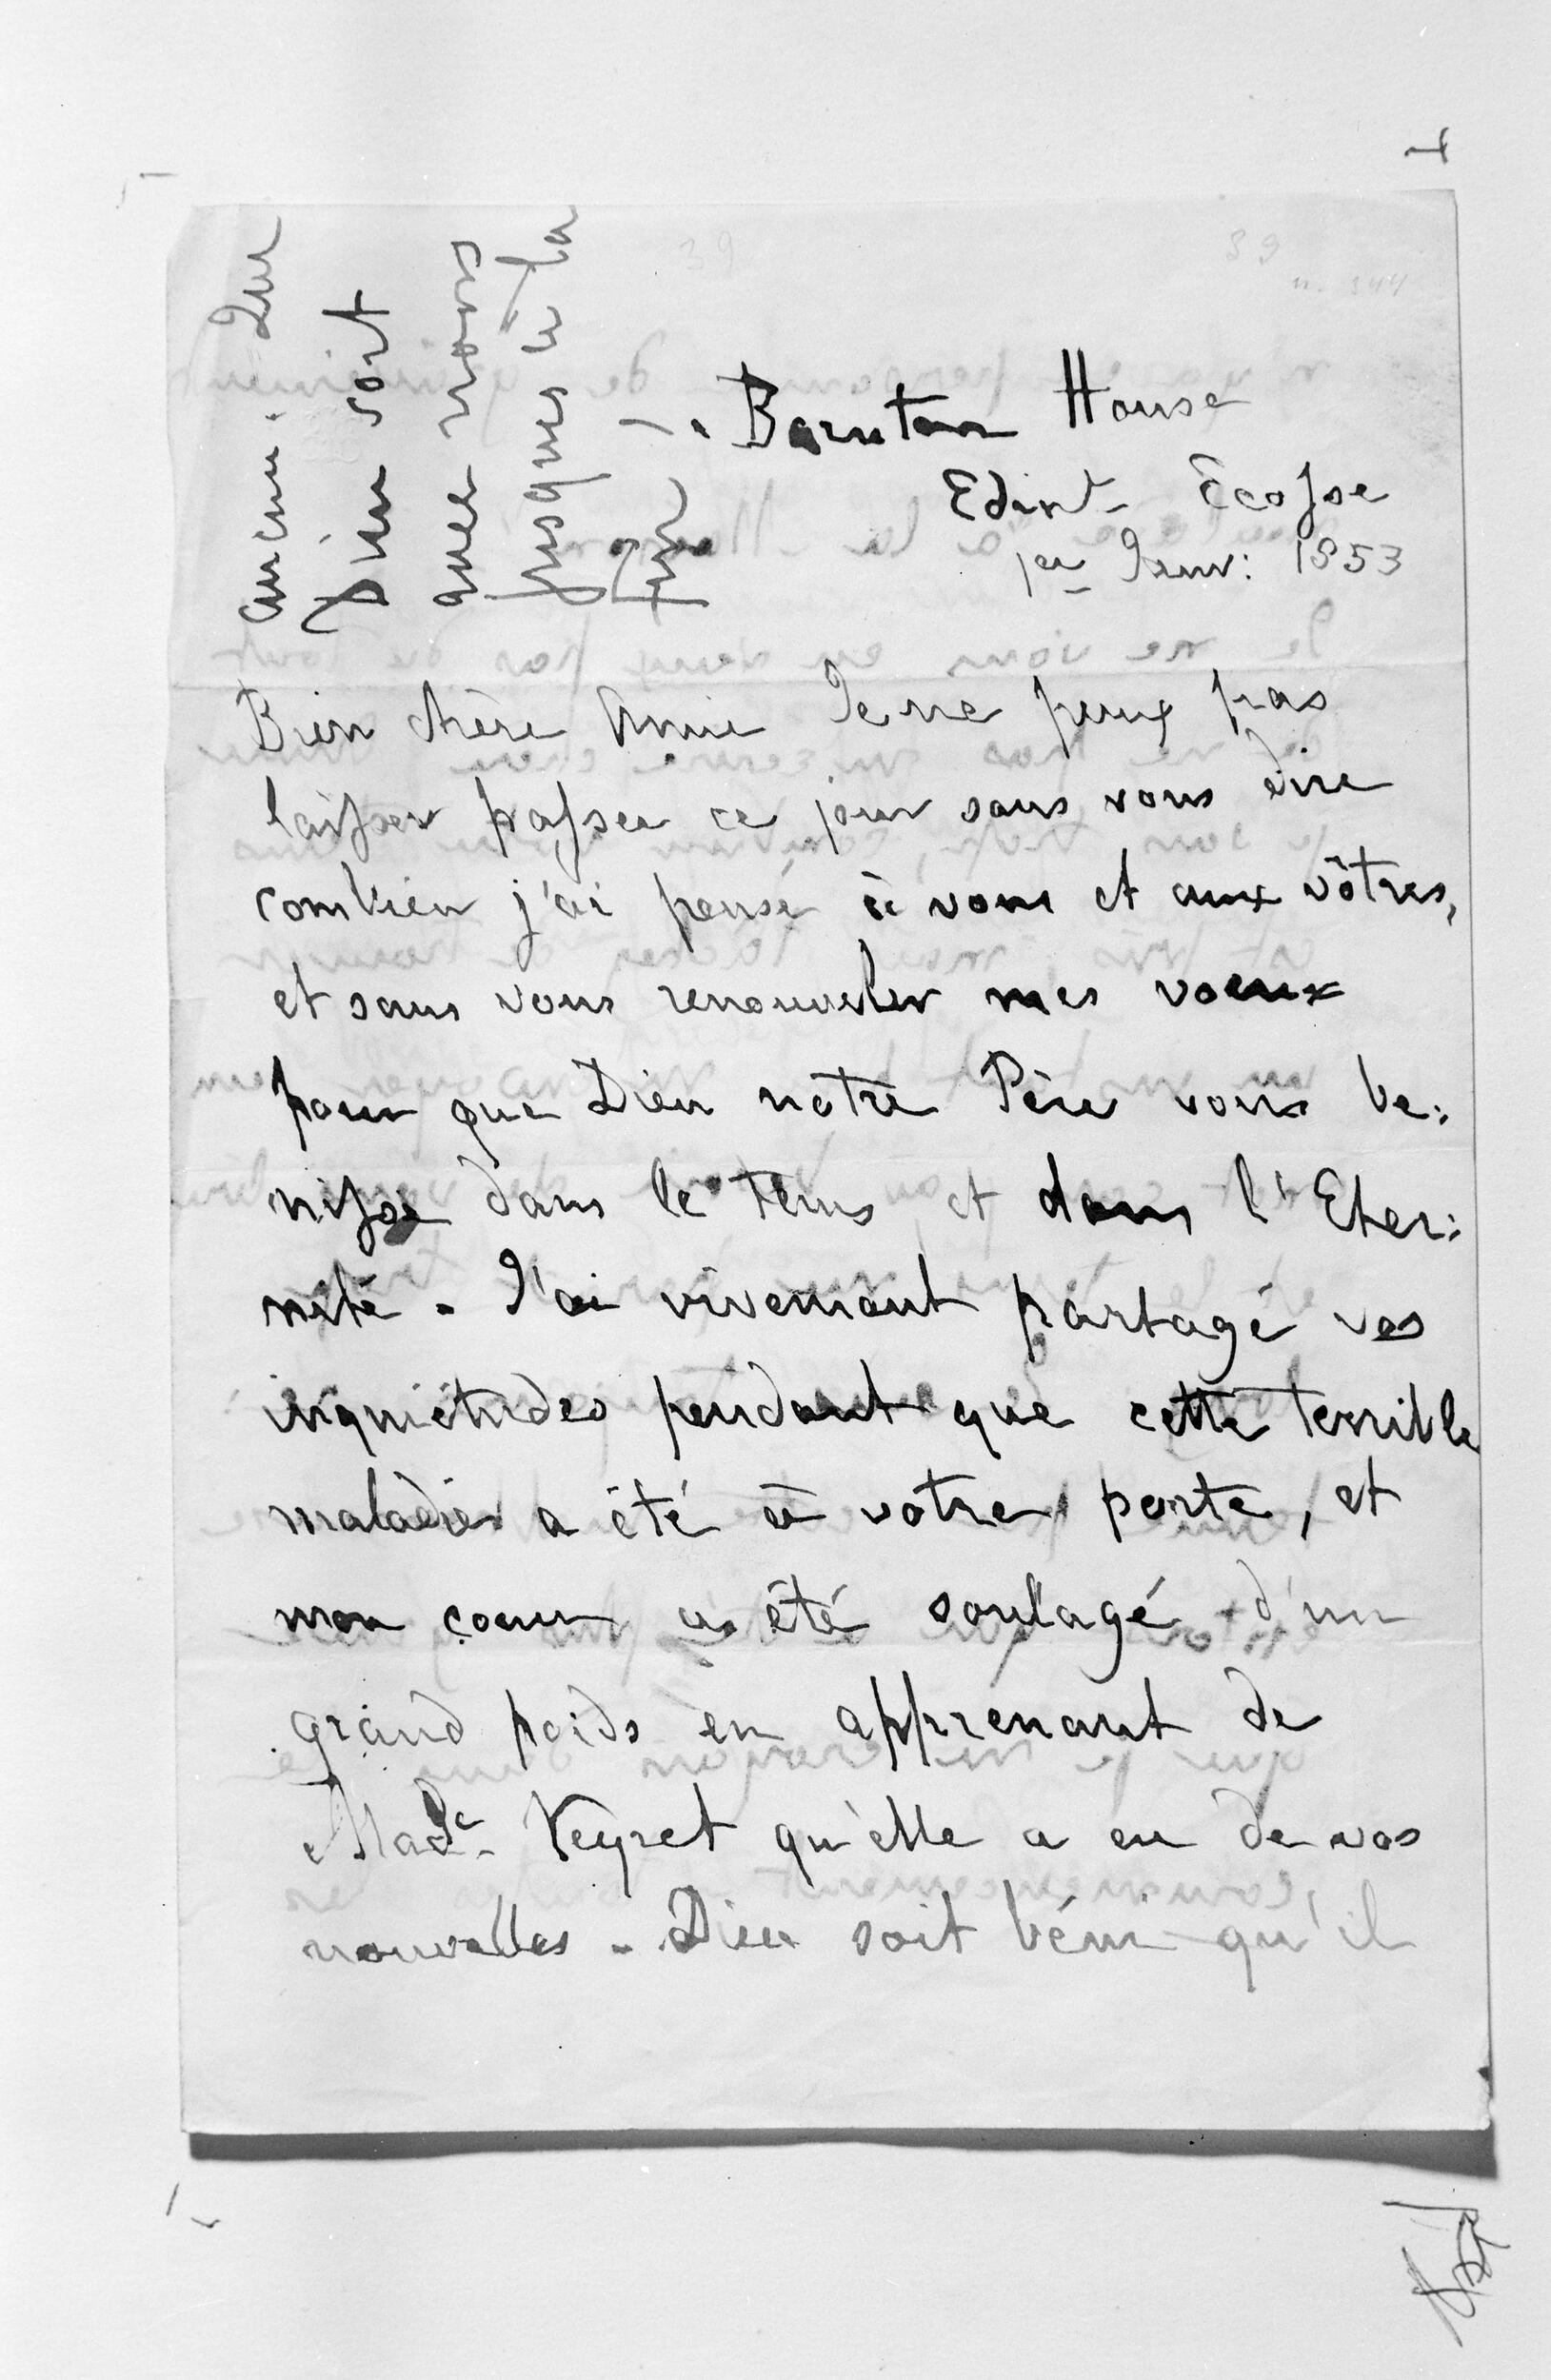 39
39
n. 344
ancun. Que
Dieu soit
avec vous
jusques à la
fin
Barnton House
Edinb. Ecosse
1er Janv: 1853
Bien chère Amie Je ne peux pas
laisser passer ce jour sans vous dire
combien j'ai pensé à vous et aux vôtres,
et sans vous renouveler mes voeux
pour que Dieu notre Père vous bé:
nisse dans le tems et dans l'Eter:
nité. J'ai vivement partagé vos
inquiétudes pendant que cette terrible
maladie a été à votre porte, et
mon coeur a été soulagé d'un
grand poids en apprenant de
Made. Veyret qu'elle a eu de vos
nouvelles. Dieu soit béni qu'il